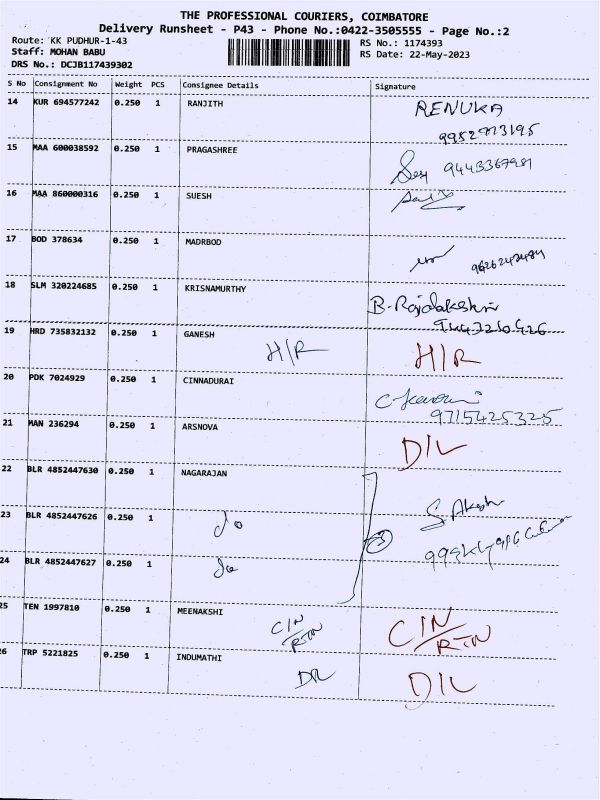 THE PROFESSIONAL COURIERS, COIMBATORE
Delivery Runsheet - P43 - Phone No.:0422-3505555 - Page No.:2
Route: KK PUDHUR-1-43
RS No.: 1174393
Staff: MOHAN BABU
RS Date: 22-May-2023
DRS No.: DCJB117439302
S No Consignment No Weight PCS Consignee Details Signature
14 KUR 694577242 0.250 1 RANJITH RENUKA
15 MAA 600038592 0.250 1 PRAGASHREE
16 MAA 860000316 0.250 1 SUESH
17 BOD 378634 0.250 1 MADRBOD
18 SLM 320224685 0.250 1 KRISNAMURTHY
19 HRD 735832132 0.250 1 GANESH H/R H/R
20 PDK 7024929 0.250 1 CINNADURAI
9715425325
21 MAN 236294 0.250 1 ARSNOVA D/L
22 BLR 4852447630 0.250 1 NAGARAJAN
23 BLR 4852447626 0.250 1 do
24 BLR 4852447627 0.250 1 do
25 TEN 1997810 0.250 1 MEENAKSHI CIN/RTN CIN/RTN
26 TRP 5221825 0.250 1 INDUMATHI D/L D/L